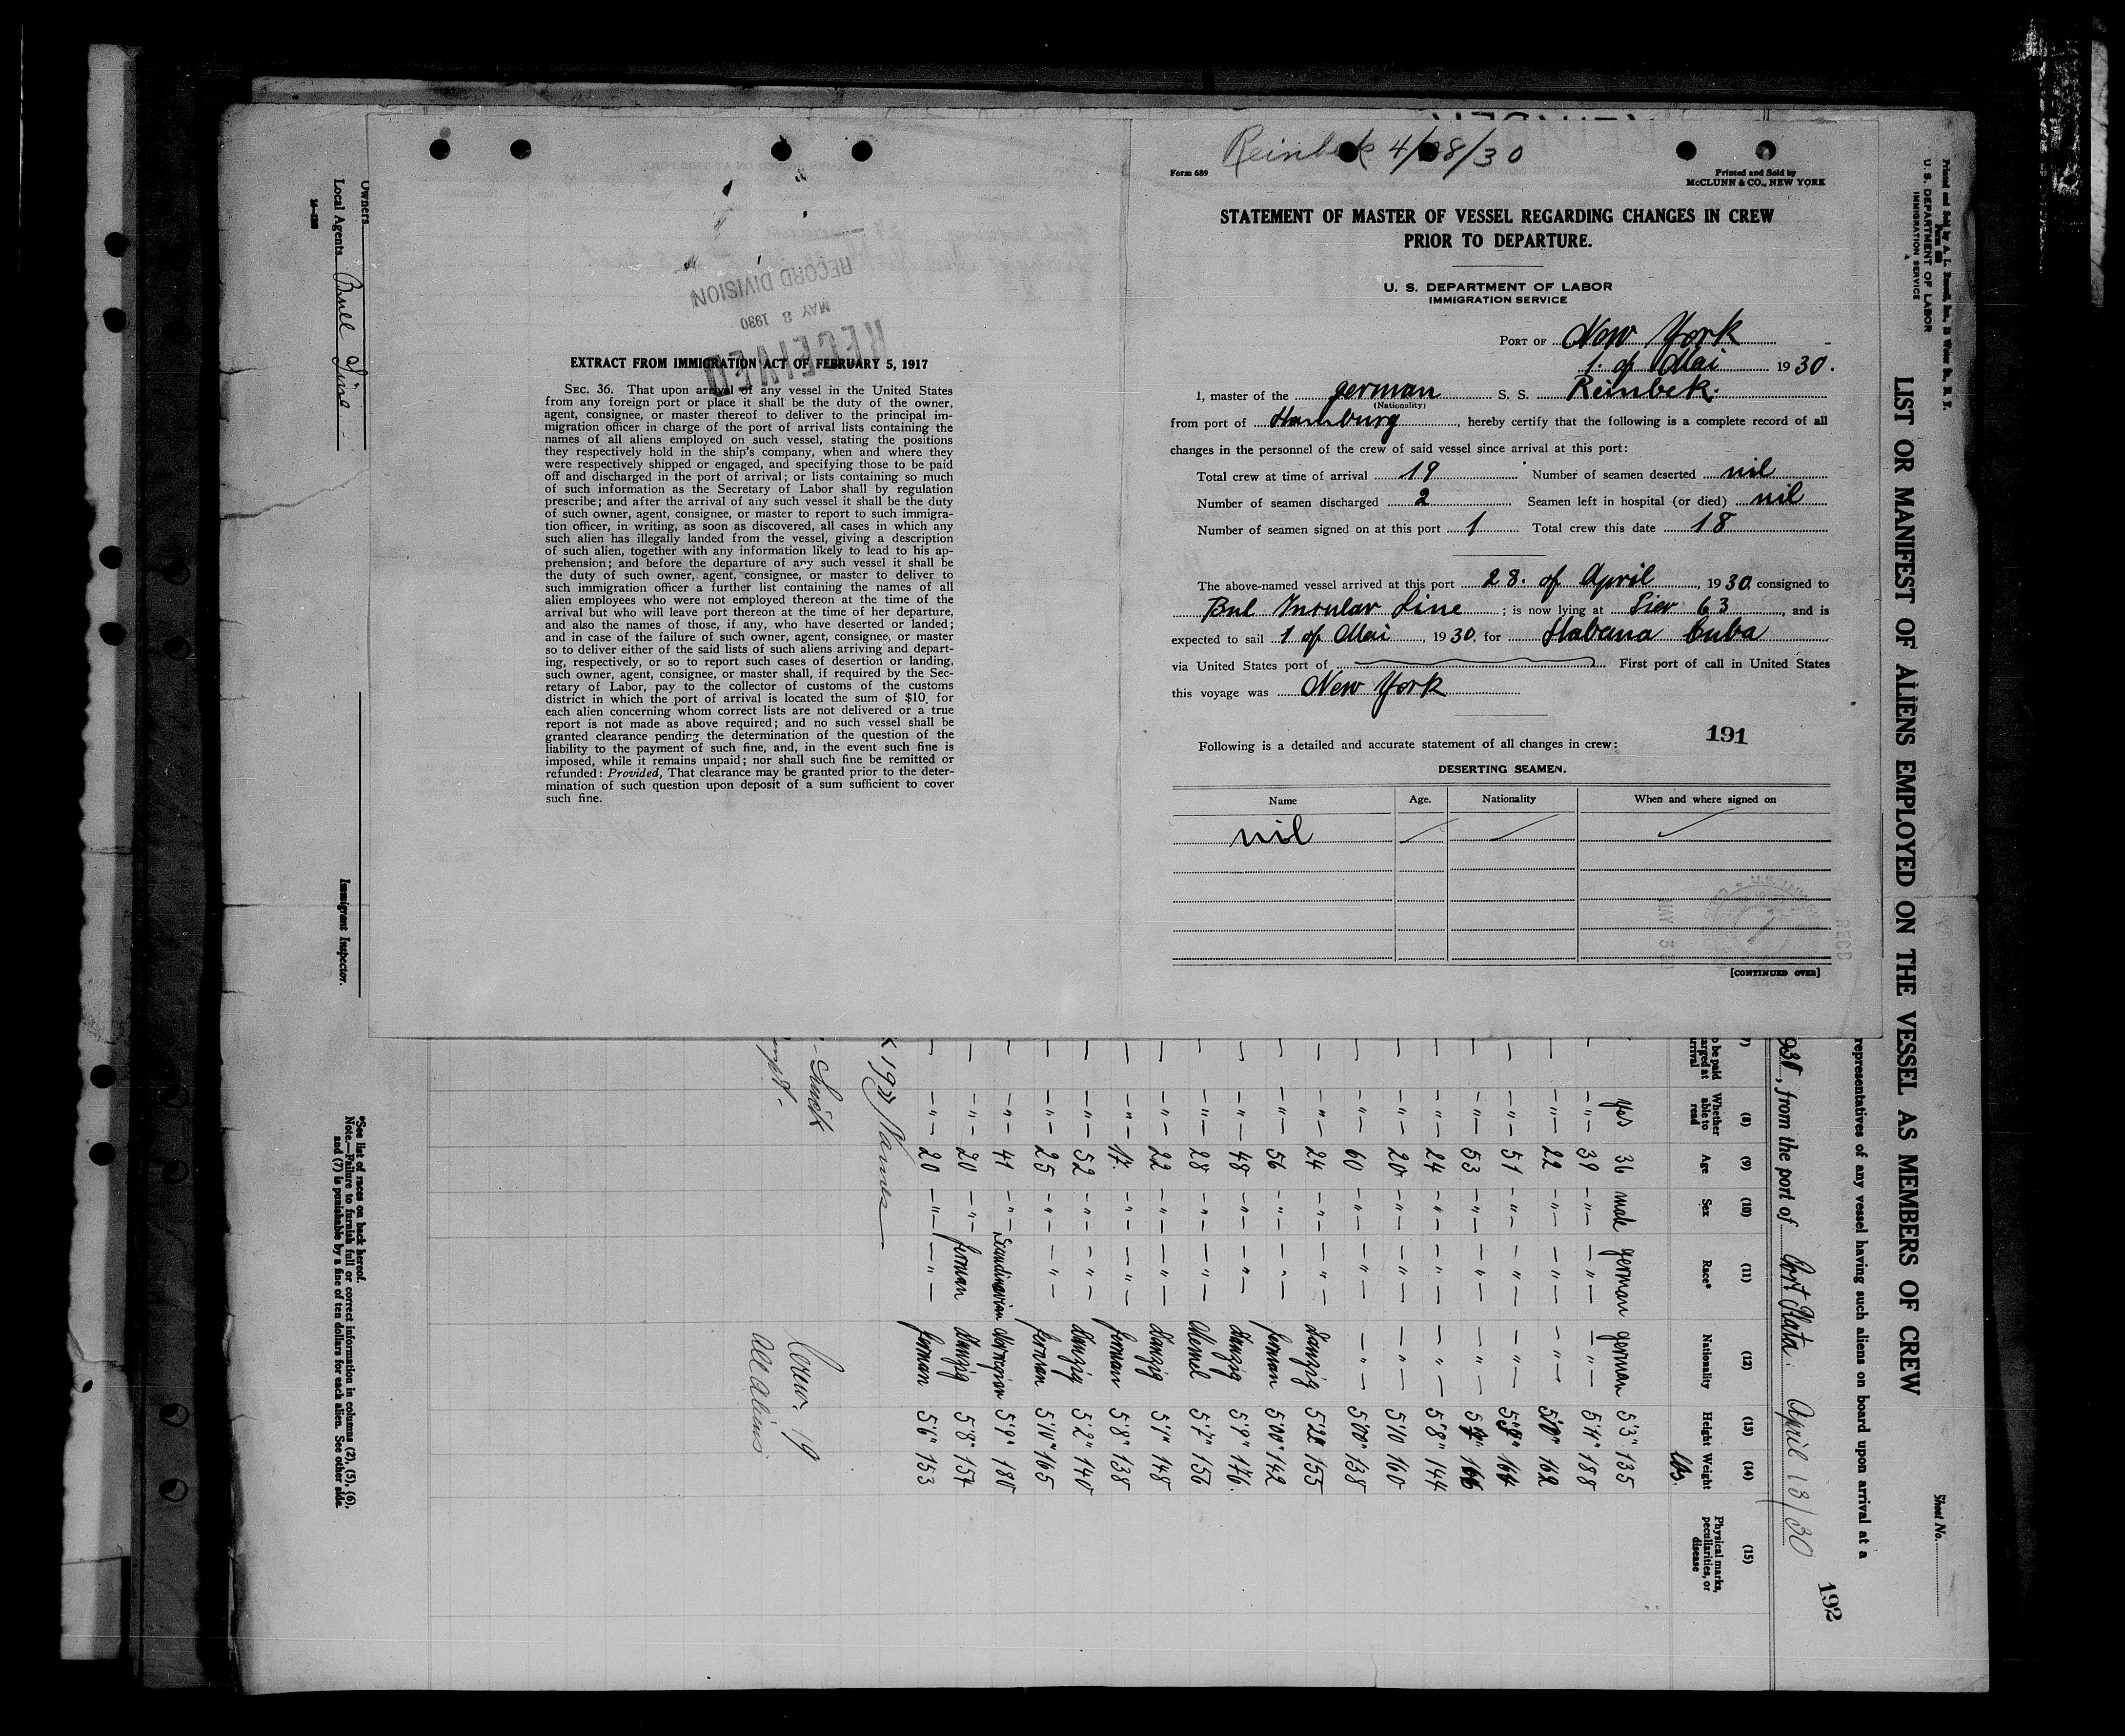 Reinbek 4/28/30
Form 689
Printed and Sold by
McCLUNN & CO., NEW YORK
STATEMENT OF MASTER OF VESSEL REGARDING CHANGES IN CREW
PRIOR TO DEPARTURE.
U. S. DEPARTMENT OF LABOR
IMMIGRATION SERVICE
PORT OF New York
1. of Mai 1930.
I, master of the german S. S. Reinbek.
(Nationality)
from port of Hamburg, hereby certify that the following is a complete record of all
changes in the personnel of the crew of said vessel since arrival at this port:
Total crew at time of arrival 19 Number of seamen deserted nil
Number of seamen discharged 2 Seamen left in hospital (or died) nil
Number of seamen signed on at this port 1 Total crew this date 18
The above-named vessel arrived at this port 28. of April, 1930 consigned to
Bul Insular Line; is now lying at Pier 63, and is
expected to sail 1 of Mai, 1930, for Habana Cuba
via United States port of First port of call in United States
this voyage was New York
191
Following is a detailed and accurate statement of all changes in crew:
DESERTING SEAMEN.
Name Age. Nationality When and where signed on
nil
[CONTINUED OVER]
REC'D
MAY 3
RECORD DIVISION
MAY 3 1930
RECEIVED
EXTRACT FROM IMMIGRATION ACT OF FEBRUARY 5, 1917
SEC. 36. That upon arrival of any vessel in the United States
from any foreign port or place it shall be the duty of the owner,
agent, consignee, or master thereof to deliver to the principal im-
migration officer in charge of the port of arrival lists containing the
names of all aliens employed on such vessel, stating the positions
they respectively hold in the ship's company, when and where they
were respectively shipped or engaged, and specifying those to be paid
off and discharged in the port of arrival; or lists containing so much
of such information as the Secretary of Labor shall by regulation
prescribe; and after the arrival of any such vessel it shall be the duty
of such owner, agent, consignee, or master to report to such immigra-
tion officer, in writing, as soon as discovered, all cases in which any
such alien has illegally landed from the vessel, giving a description
of such alien, together with any information likely to lead to his ap-
prehension; and before the departure of any such vessel it shall be
the duty of such owner, agent, consignee, or master to deliver to
such immigration officer a further list containing the names of all
alien employees who were not employed thereon at the time of the
arrival but who will leave port thereon at the time of her departure,
and also the names of those, if any, who have deserted or landed;
and in case of the failure of such owner, agent, consignee, or master
so to deliver either of the said lists of such aliens arriving and depart-
ing, respectively, or so to report such cases of desertion or landing,
such owner, agent, consignee, or master shall, if required by the Sec-
retary of Labor, pay to the collector of customs of the customs
district in which the port of arrival is located the sum of $10 for
each alien concerning whom correct lists are not delivered or a true
report is not made as above required; and no such vessel shall be
granted clearance pending the determination of the question of the
liability to the payment of such fine, and, in the event such fine is
imposed, while it remains unpaid; nor shall such fine be remitted or
refunded: Provided, That clearance may be granted prior to the deter-
mination of such question upon deposit of a sum sufficient to cover
such fine.
Printed and Sold by
U. S. DEPARTMENT OF LABOR
IMMIGRATION SERVICE
Sheet No.
LIST OR MANIFEST OF ALIENS EMPLOYED ON THE VESSEL AS MEMBERS OF CREW
representatives of any vessel having such aliens on board upon arrival at a
192
930, from the port of Port Plata. April 13/30
(8) (9) (10) (11) (12) (13) (14) (15)
Whether able to read Age Sex Race* Nationality Height Weight Physical marks, peculiarities, or disease
lbs.
yes 36 male german german 5'3" 135
-"- 39 -"- -"- -"- 5'11" 188
-"- 22 -"- -"- -"- 5'10" 162
-"- 51 -"- -"- -"- 164
-"- 53 -"- -"- -"- 166
-"- 24 -"- -"- -"- 5'8" 144
-"- 20 -"- -"- -"- 5'10 160
-"- 60 -"- -"- -"- 5'00" 138
-"- 24 -"- -"- Danzig 155
-"- 56 -"- -"- german 5'00" 142
-"- 48 -"- -"- Danzig 5'9" 176.
-"- 28 -"- -"- Memel 5'7" 156
-"- 22 -"- -"- Danzig 5'1" 148
-"- 17. -"- -"- german 5'8" 138
-"- 52 -"- -"- Danzig 5'2" 140
-"- 25 -"- -"- german 5'10" 165
-"- 41 -"- Scandinavian Norwegian 5'9" 180
-"- 20 -"- german Danzig 5'8" 157
-"- 20 -"- -"- german 5'6" 153
19
Crew. 19
all aliens.
Owners
Local Agents Bull Line
Immigrant Inspector.
*See list of races on back hereof.
Note.—Failure to furnish full or correct information in columns (2), (5), (6),
and (7) is punishable by a fine of ten dollars for each alien. See other side.